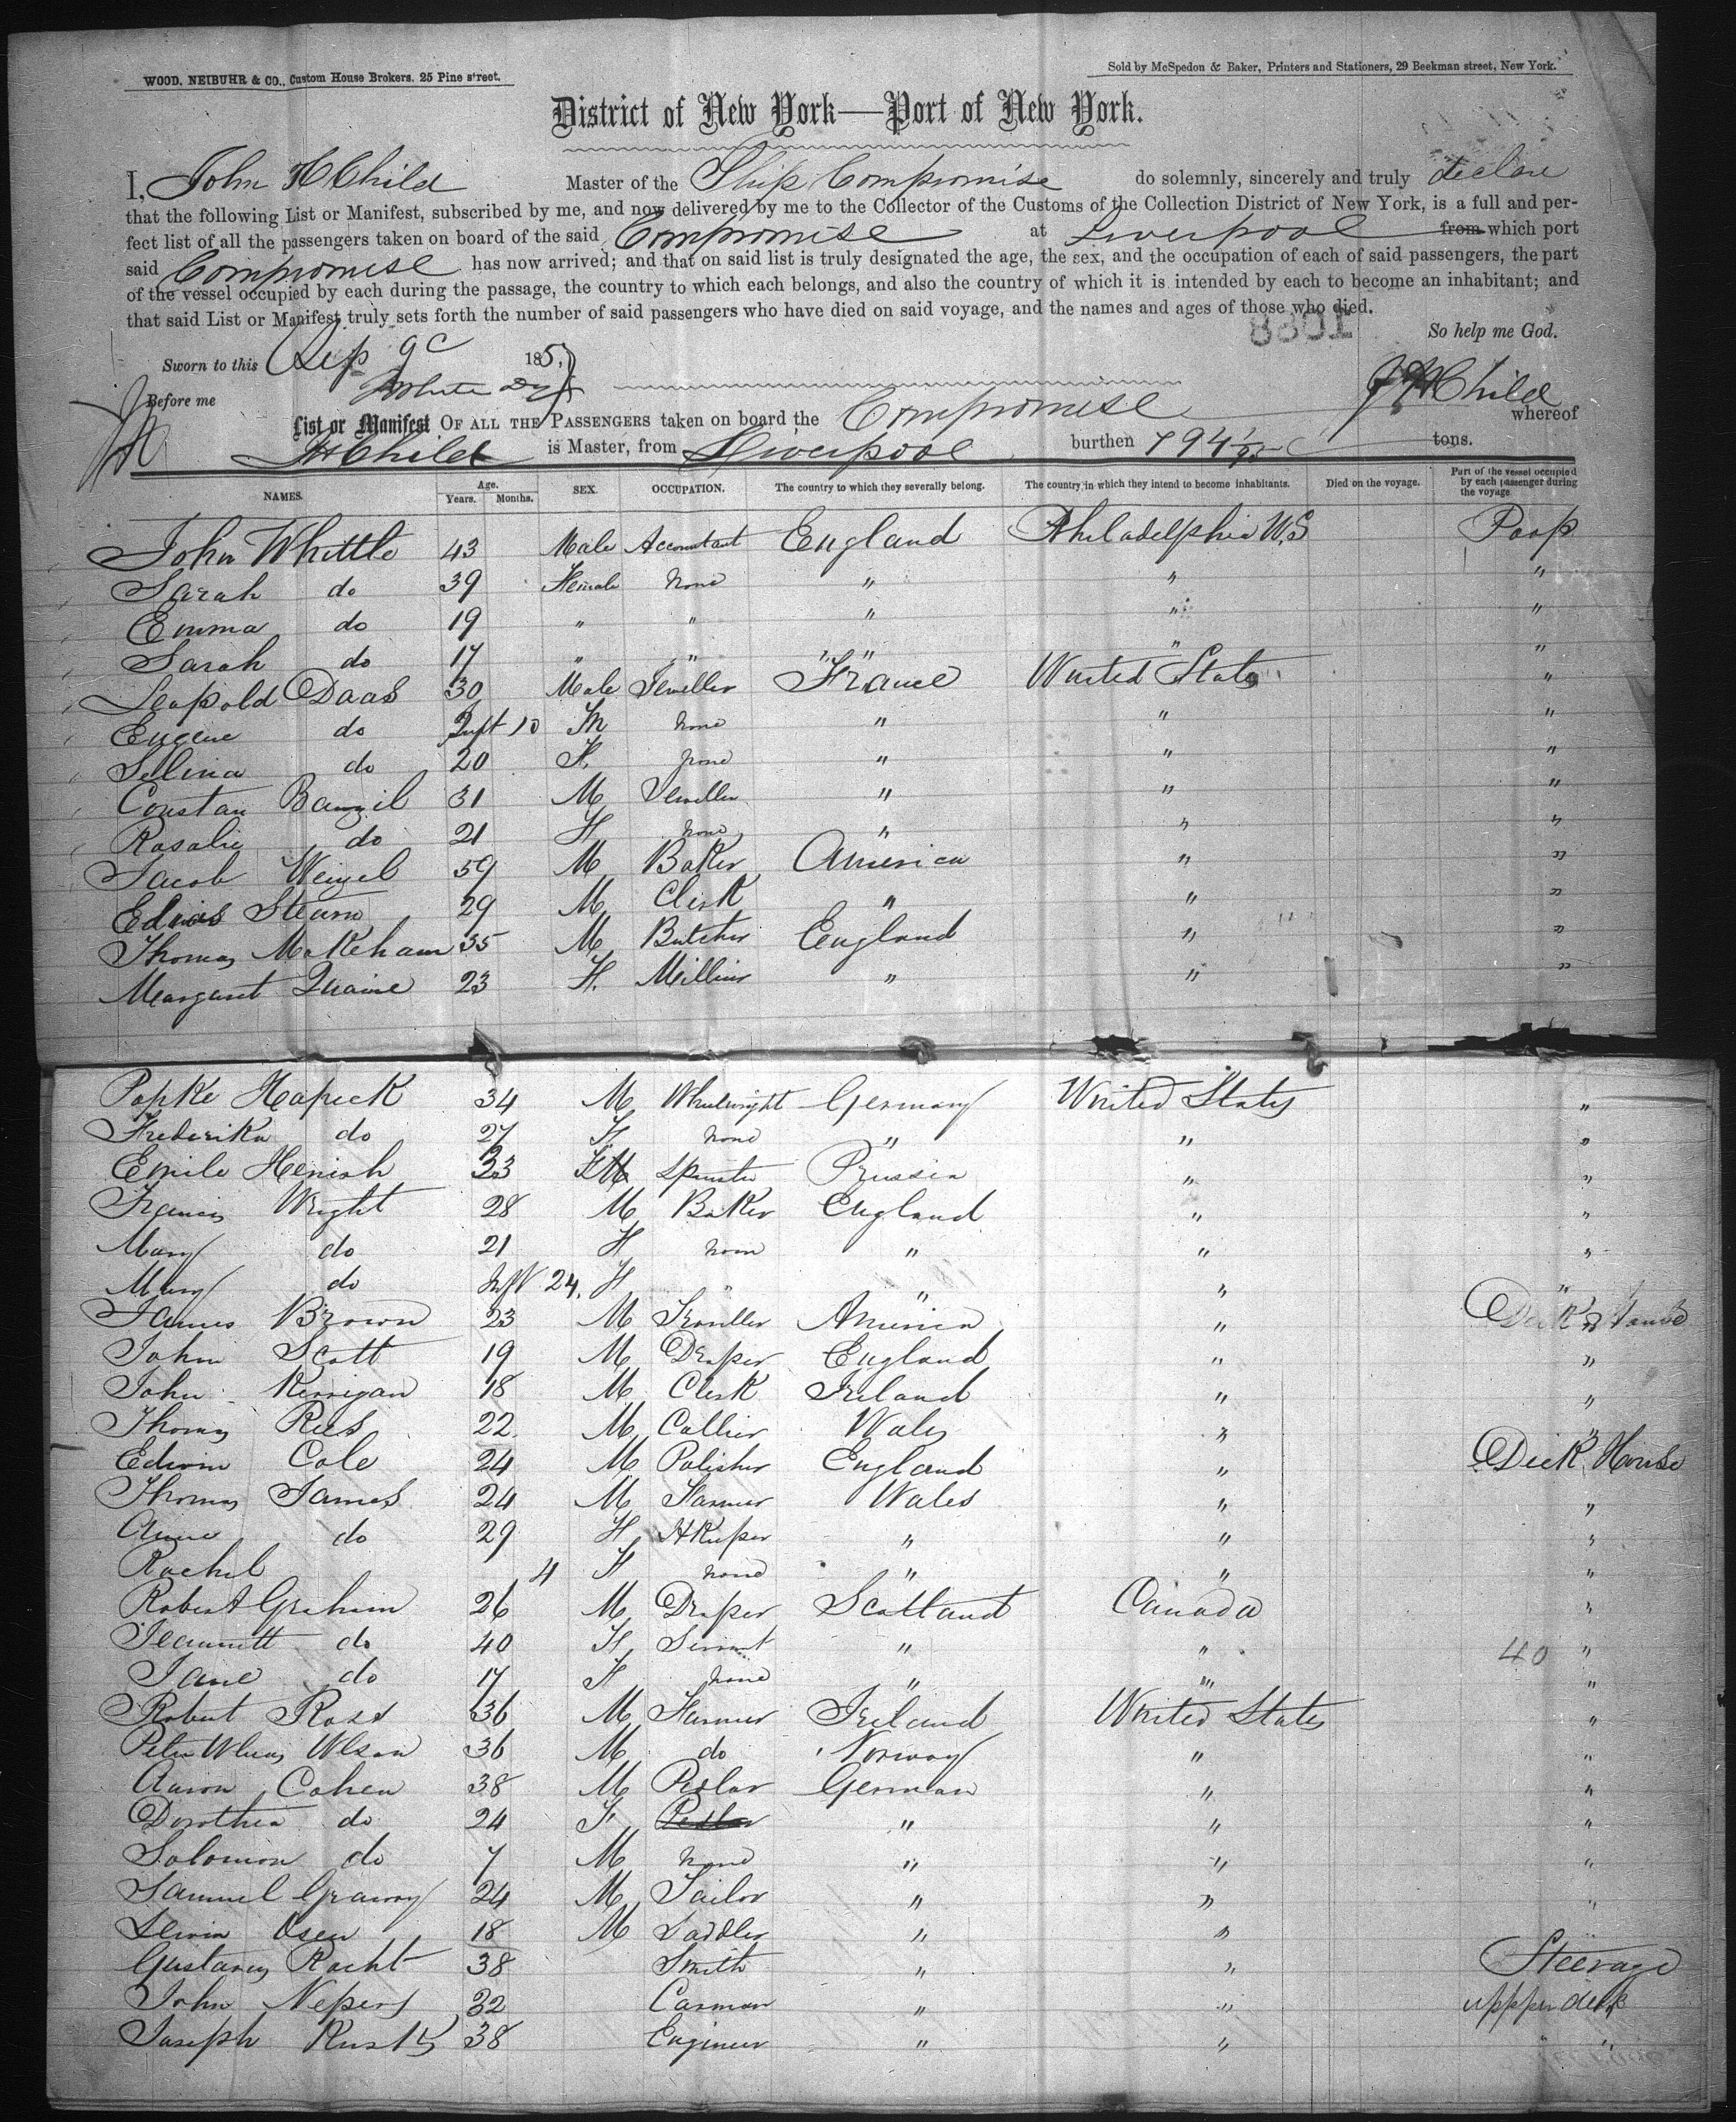 WOOD, NEIBUHR & CO., Custom House Brokers, 25 Pine street.
Sold by McSpedon & Baker, Printers and Stationers, 29 Beekman street, New York.
District of New York—Port of New York.
I, John H Child Master of the Ship Compromise do solemnly, sincerely and truly declare
that the following List or Manifest, subscribed by me, and now delivered by me to the Collector of the Customs of the Collection District of New York, is a full and per-
fect list of all the passengers taken on board of the said Compromise at Liverpool from which port
said Compromise has now arrived; and that on said list is truly designated the age, the sex, and the occupation of each of said passengers, the part
of the vessel occupied by each during the passage, the country to which each belongs, and also the country of which it is intended by each to become an inhabitant; and
that said List or Manifest truly sets forth the number of said passengers who have died on said voyage, and the names and ages of those who died.
1088
So help me God.
Sworn to this Sep 9 185
Before me
J H Child
List or Manifest OF ALL THE PASSENGERS taken on board the Compromise whereof
J H Child is Master, from Liverpool burthen 794 tons.
NAMES. Age. Years. Months. SEX. OCCUPATION. The country to which they severally belong. The country in which they intend to become inhabitants. Died on the voyage. Part of the vessel occupied by each passenger during the voyage
John Whittle 43 Male Accountant England Philadelphia U.S Poop
Sarah do 39 Female None " " "
Emma do 19 " " " " "
Sarah do 17 " " " " "
Leopold Daas 30 Male Jeweller France United States "
Eugene do Inft 10 M none " " "
Selina do 20 F. none " " "
Constan 31 M Jeweller " " "
Rosalie do 21 F none " " "
Jacob Weizel 59 M Baker America " "
Stearn 29 M Clerk " " "
Thomas Makeham 35 M Butcher England " "
Margaret Quaine 23 F. Milliner " " "
Popke Hapeck 34 M Wheelwright Germany United States "
Frederika do 27 F none " " "
Emile Henish 33 F Spinster Prussia " "
Francis Wright 28 M Baker England " "
Mary do 21 F none " " "
Mary do Inft 24. F " " " "
James Brown 23 M Traveller America " Deck House
John Scott 19 M Draper England " "
John Kerrigan 18 M Clerk Ireland " "
Thomas Rees 22 M Collier Wales " "
Edwin Cole 24 M Polisher England " Deck House
Thomas James 24 M Farmer Wales " "
Anne do 29 F HKeeper " " "
Rachel 4 F none " " "
Robert Graham 26 M Draper Scotland Canada "
Jeannett do 40 F Servant " " 40 "
Jane do 17 F none " " "
Robert Ross 36 M Farmer Ireland United States "
Peter 36 M do Norway " "
Aaron Cohen 38 M Pedlar German " "
Dorothea do 24 F Pedlar " " "
Solomon do 7 M none " " "
Samuel 24 M Tailor " " "
18 M Saddler " "
Gustavus Racht 38 Smith " " Steerage
John Nepers 32 Carman " " uppper deck
Joseph 38 Engineer " " " "